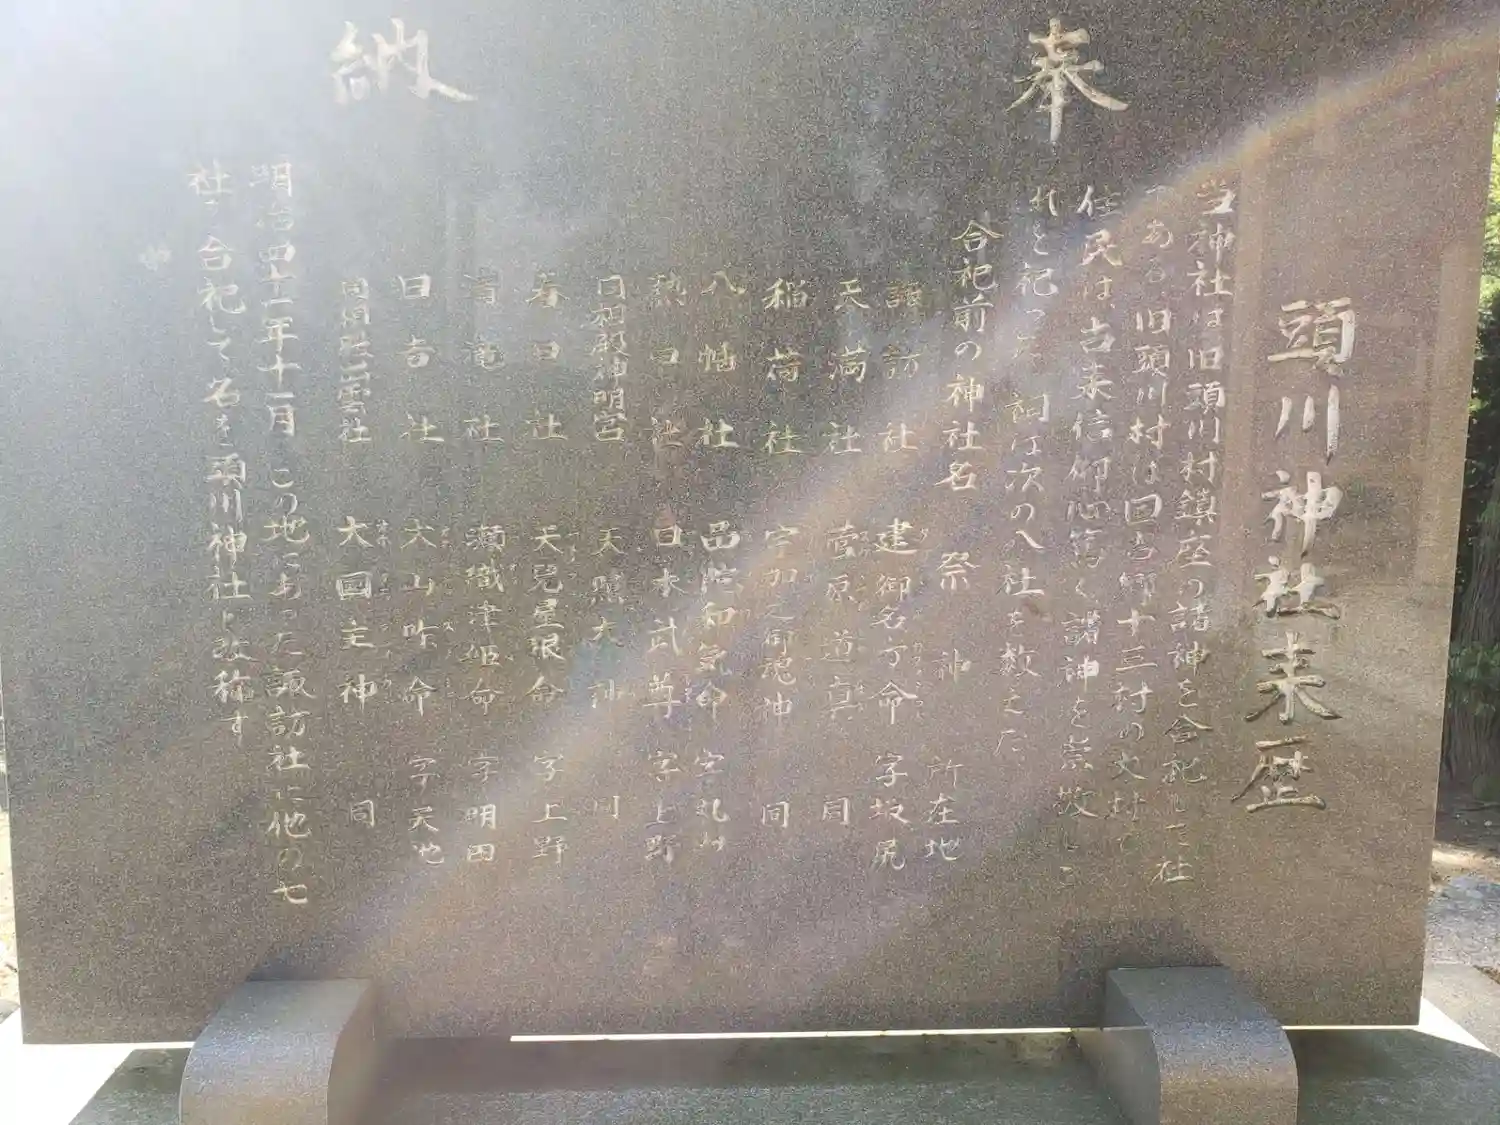 奉納
頭川神社来歴
当神社は旧頭川村鎮座の諸神を合祀した社
である 旧頭川村は回吉郷十三村の大村で
住民は古来信仰心篤く諸神を崇敬しこ
れを祀った 祠は次の八社を数えた
合祀前の神社名 祭神 所在地
諏訪社 建御名方命 字坂尻
天満社 菅原道真 同
稲荷社 宇加之御魂神 同
八幡社 品陀和気命 字丸山
熱田社 日本武尊 字上野
同相殿神明宮 天照大神 同
春日社 天児屋根命 字上野
清滝社 瀬織津姫命 字明田
日吉社 大山咋命 字天池
大国主神 同
明治四十一年十一月 この地にあった諏訪社に他の七
社を合祀して名を頭川神社と改称す